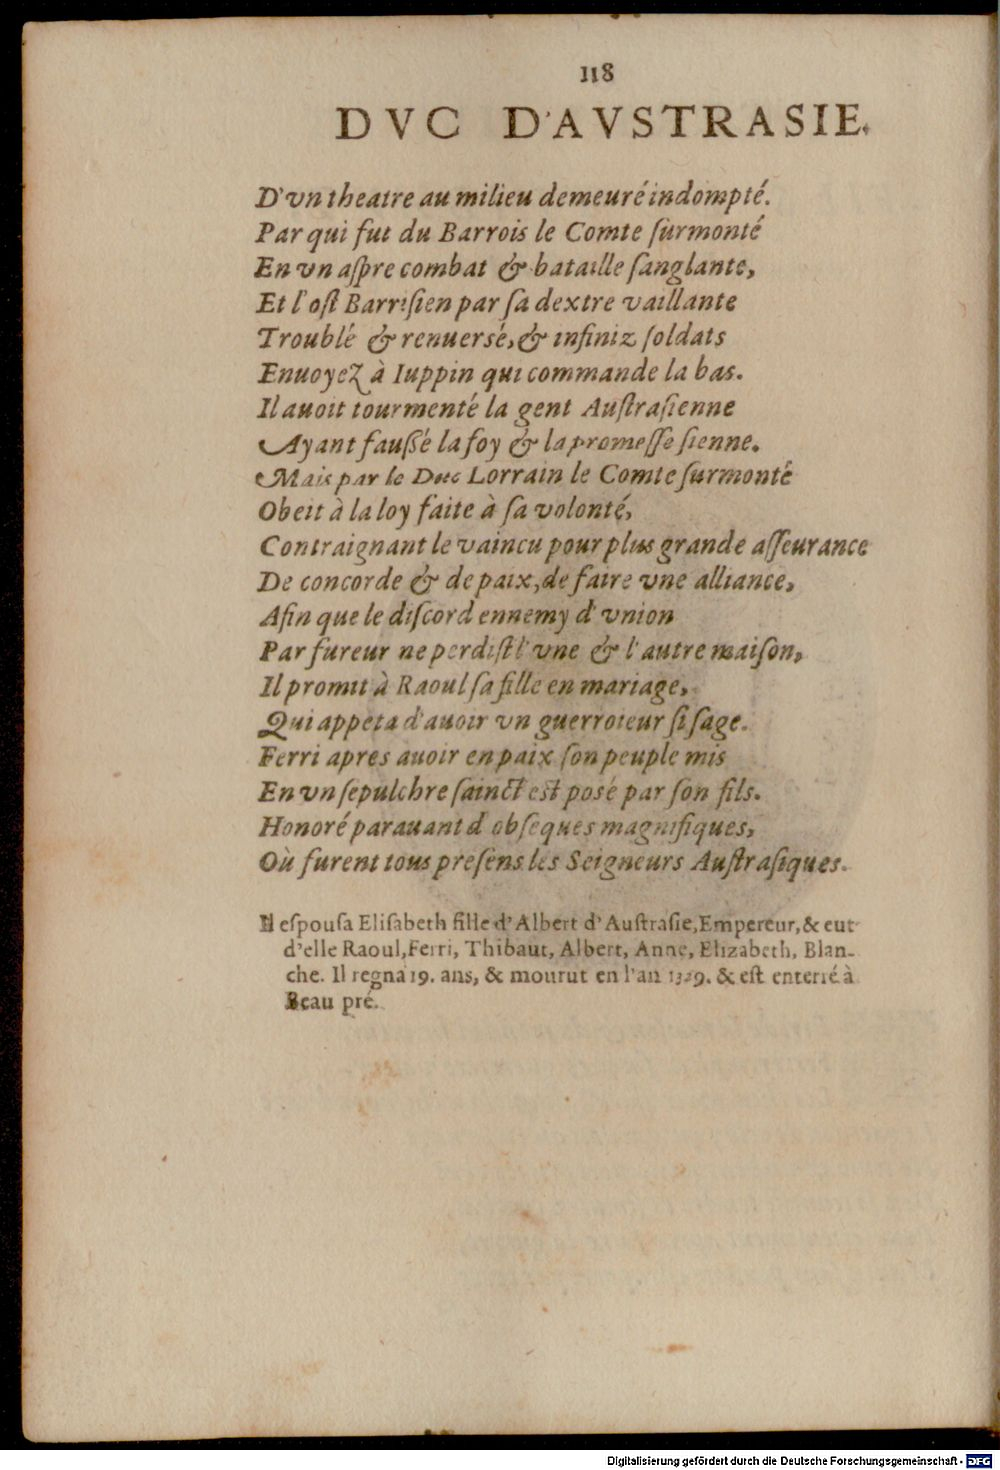 118
DVC D'AVSTRASIE.
D'vn theatre au milieu demeuré indompté.
Par qui fut du Barrois le Comte ſurmonté
En vn aſpre combat & bataille ſanglante,
Et l'oſt Barriſien par ſa dextre vaillante
Troublé & renuersé, & infiniz ſoldats
Enuoyez à Iuppin qui commande la bas.
Il auoit tourmenté la gent Auſtraſienne
Ayant faußé la foy & la promeſſe ſienne.
Mais par le Duc Lorrain le Comte ſurmonté
Obeit à la loy faite à ſa volonté,
Contraignant le vaincu pour plus grande aſſeurance
De concorde & de paix, de faire vne alliance,
Afin que le diſcord ennemy d'vnion
Par fureur ne perdiſt l'vne & l'autre maiſon,
Il promit à Raoul ſa fille en mariage,
Qui appeta d'auoir vn guerroieur ſi ſage.
Ferri apres auoir en paix ſon peuple mis
En vn ſepulchre ſainct est posé par ſon fils.
Honoré parauant d'obſeques magnifiques,
Où furent tous preſens les Seigneurs Auſtraſiques.
Il eſpouſa Eliſabeth fille d'Albert d'Auſtraſie, Empereur, & eut
d'elle Raoul, Ferri, Thibaut, Albert, Anne, Elizabeth, Blan-
che. Il regna 19. ans, & mourut en l'an 1329. & eſt enterré à
Beau pré.
Digitalisierung gefördert durch die Deutsche Forschungsgemeinschaft - DFG